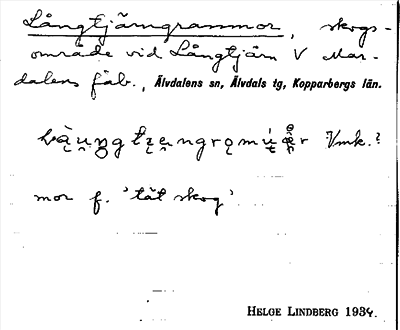 Långtjärngrammor, skogs-
område vid Långtjärn V Mar-
dalens fäb., Älvdalens sn, Älvdals tg, Kopparbergs län.
mor f. 'tät skog'
HELGE LINDBERG 1934.